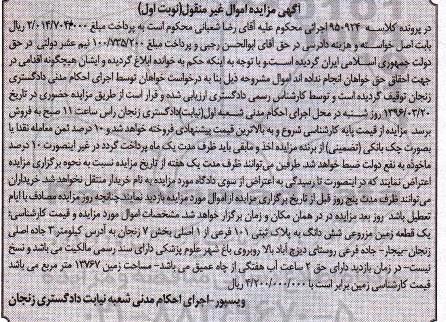 آگهی مزایده اموال غیر منقول(نوبت اول)
در پرونده کلاسه ۹۵۰۹۲۴ اجرائی محکوم علیه آقای رضا شعبانی محکوم است به پرداخت مبلغ ۲/۰۱۴/۷۰۴۰۰۰ ریال
بابت اصل خواسته و هزینه دادرسی در حق آقای ابوالحسن رجبی و پرداخت مبلغ ۱۰۰/۷۳۵/۲۰۰ نیم عشر دولتی در حق
دولت جمهوری اسلامی ایران گردیده است و با توجه به اینکه حکم به خوانده ابلاغ گردیده و ایشان هیچگونه اقدامی در
جهت احقاق حق خواهان انجام نداده اند اموال مشروحه ذیل بنا به درخواست خواهان توسط اجرای احکام مدنی دادگستری
زنجان توقیف گردیده است و توسط کارشناس رسمی دادگستری ارزیابی شده و قرار است از طریق مزایده حضوری در تاریخ
۱۳۹۶/۰۳/۲۰ روز شنبه در محل اجرای احکام مدنی شعبه اول(نیابت)دادگستری زنجان راس ساعت ۱۱ صبح به فروش
برسد. مزایده از قیمت پایه کارشناسی شروع و به بالاترین قیمت پیشنهادی فروخته خواهد شد و ۱۰ درصد ثمن معامله نقدا یا
بصورت چک بانکی(تضمینی) از برنده مزایده اخذ و مابقی باید ظرف مدت یک ماه پرداخت گردد در غیر اینصورت ۱۰ درصد
ماخوذه به نفع دولت ضبط خواهد شد. طرفین می‌توانند ظرف مدت یک هفته از تاریخ مزایده نسبت به نحوه برگزاری مزایده
اعتراض نمایند که در اینصورت تا رسیدگی به اعتراض از سوی دادگاه مورد مزایده به نام خریدار منتقل نخواهد شد. خریداران
می‌توانند ظرف مدت پنج روز قبل از تاریخ برگزاری مزایده از اموال مورد مزایده بازدید نمایند.چنانچه روز مزایده مصادف با ایام
تعطیل باشد روز بعد مزایده در در همان مکان و زمان برگزار خواهد شد. مشخصات اموال مورد مزایده و قیمت کارشناسی:
یک قطعه زمین مزروعی شش دانگ به پلاک ثبتی ۱۰۱ فرعی از ۱ اصلی بخش ۷ زنجان به آدرس کیلومتر ۳ جاده اصلی
زنجان-بیجار- جاده فرعی روستای دیزج آباد بالا روبروی باغ شهر علوم پزشکی دارای سند رسمی مالکیت می باشد و نسخ
نیست- در زمان بازدید دارای حق ۲ ساعت آب هفتگی از چاه عمیق می باشد- مساحت زمین ۱۳۷۶۷ متر مربع می باشد
قیمت کارشناسی زمین برابر است با ۴/۷۰۰/۰۰۰/۰۰۰ ریال می باشد.
ویسپور-اجرای احکام مدنی شعبه نیابت دادگستری زنجان